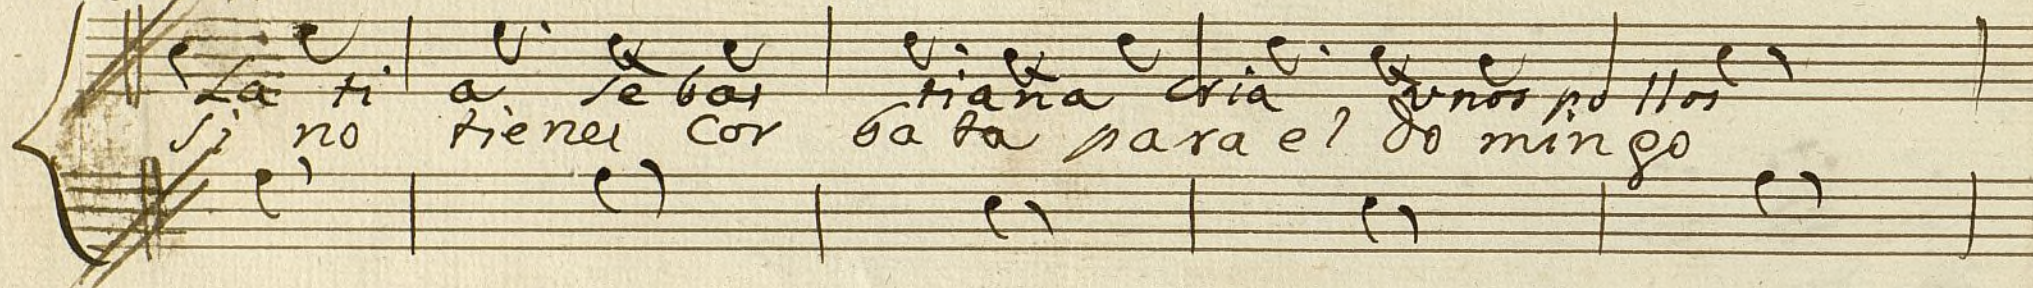 La ti a se bas tiana cria vnos po llos
si no tienes cor bata para el do mingo